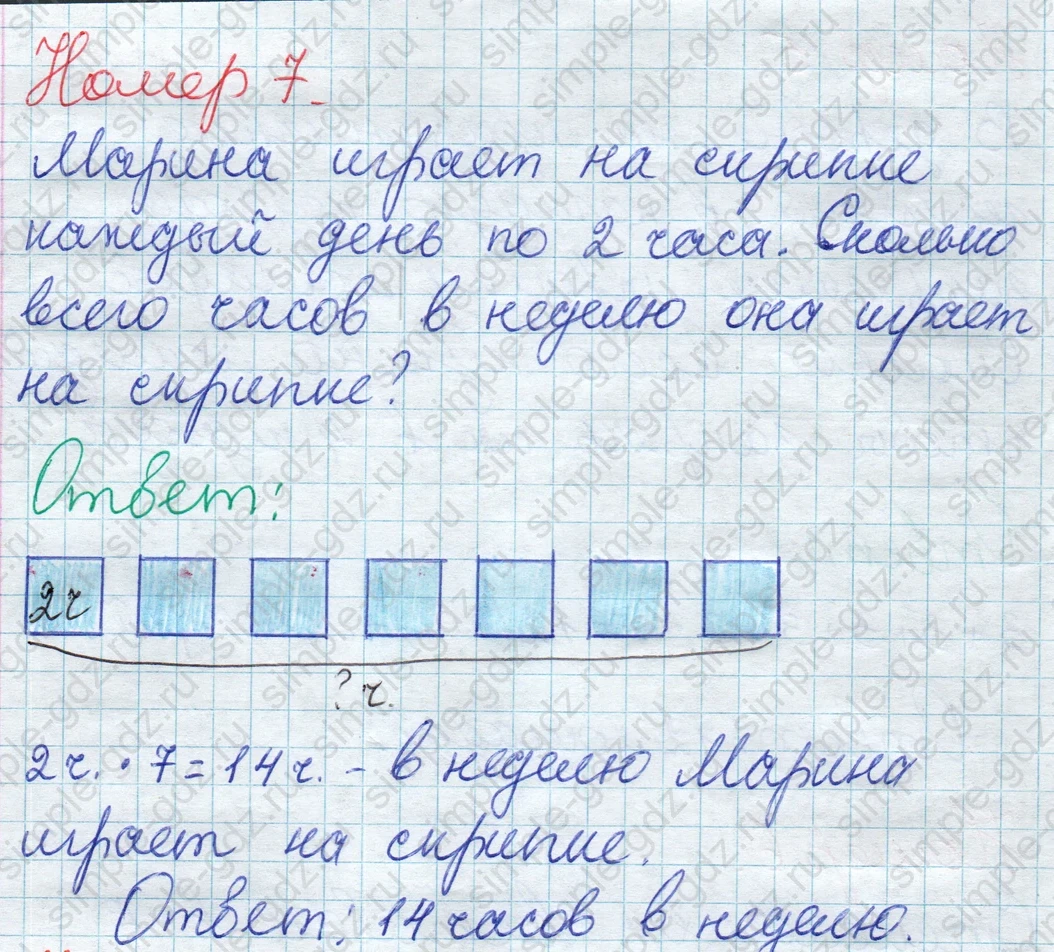 Номер 7.
Марина играет на скрипке
каждый день по 2 часа. Сколько
всего часов в неделю она играет
на скрипке?
Ответ:
2ч
? ч.
2ч. · 7 = 14 ч. – в неделю Марина
играет на скрипке.
Ответ: 14 часов в неделю.
simple-gdz.ru